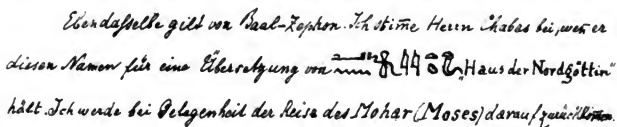 Ebendasselbe gilt von Baal-Zephon. Ich stim̄e Herrn Chabas bei, wen̄ er
diesen Namen für eine Übersetzung von „Haus der Nordgöttin“
hält. Ich werde bei Gelegenheit der Reise des Mohar (Moses) darauf zurückkom̄en.